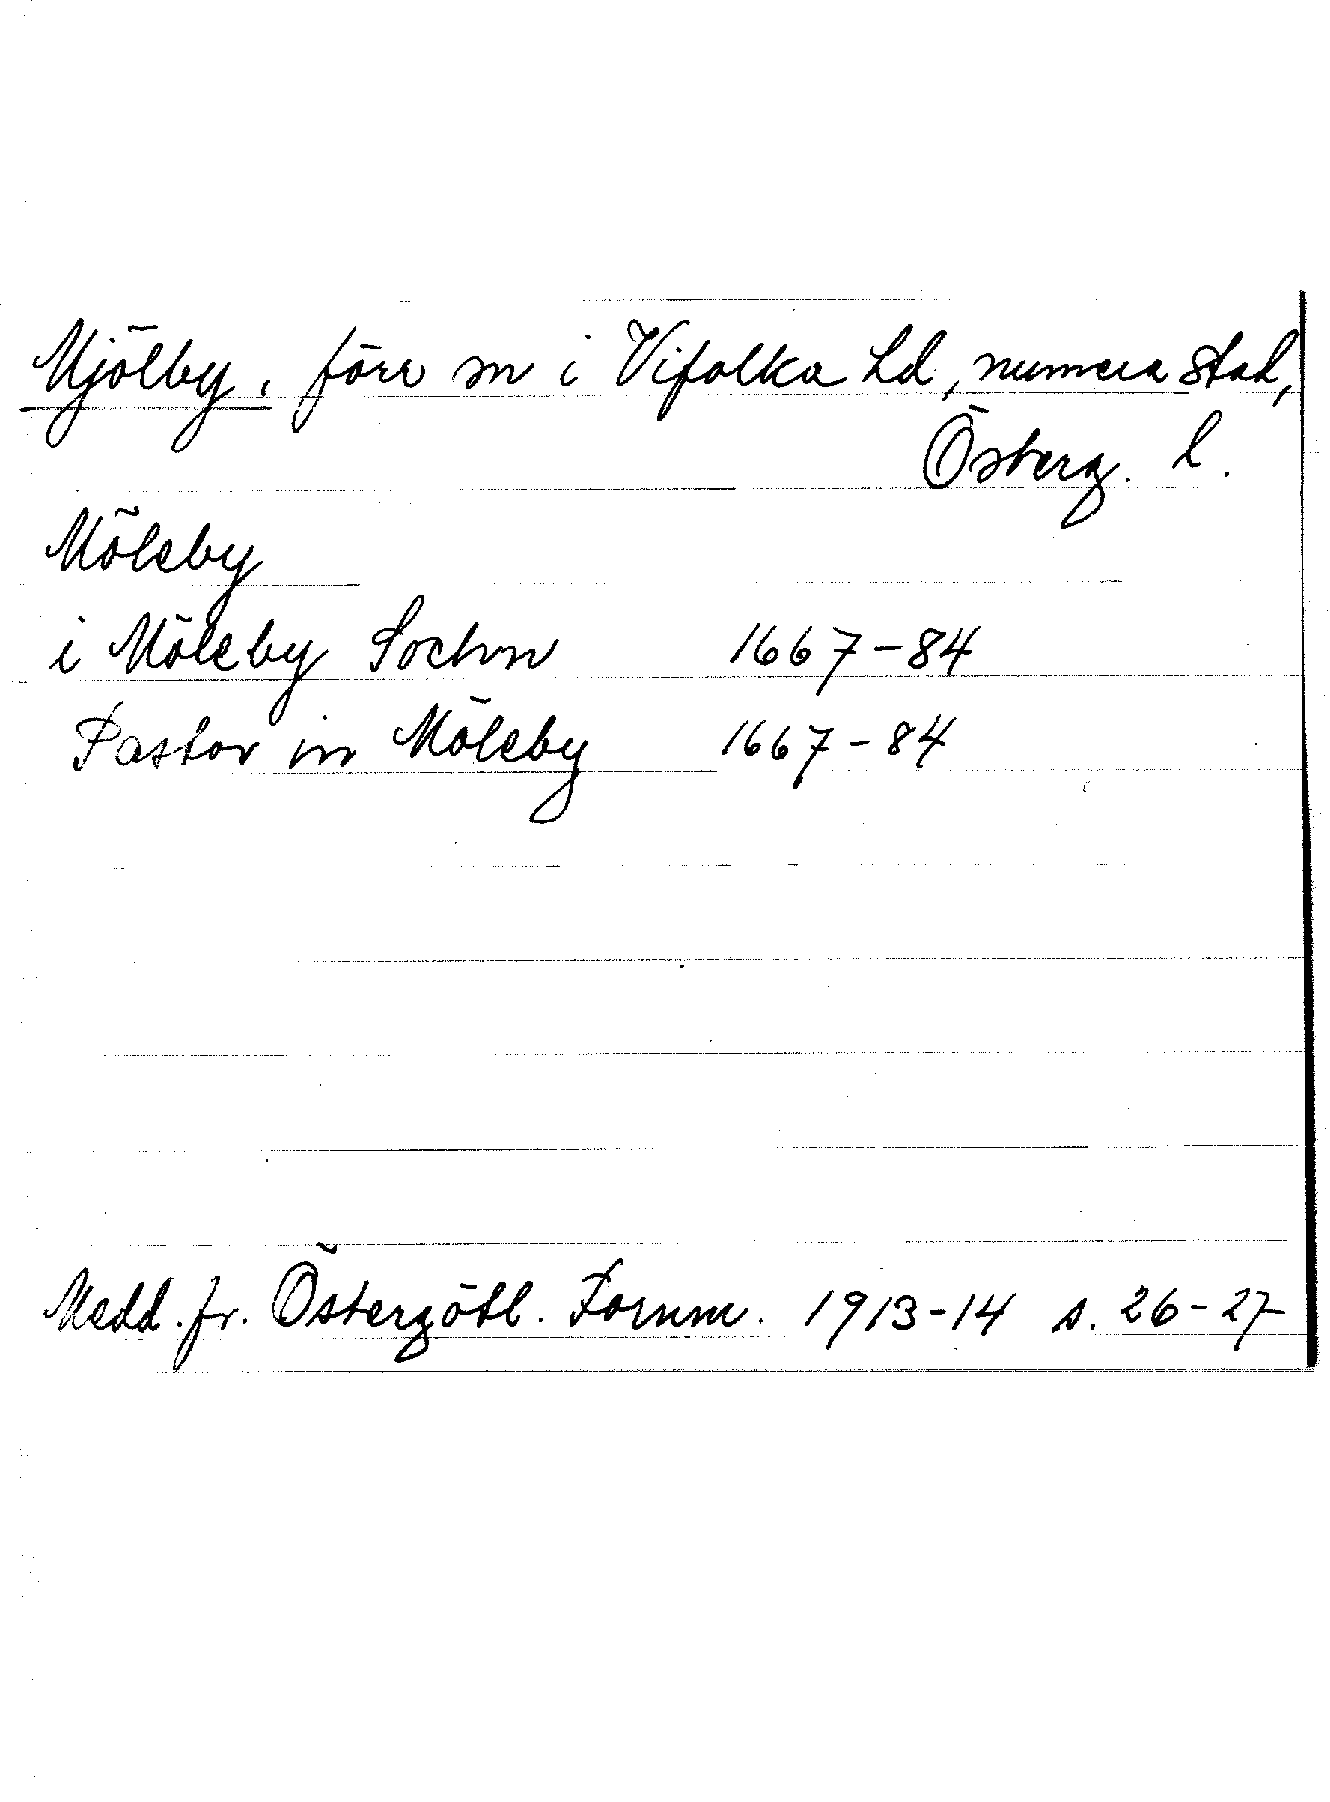 Mjölby, förr sn i Vifolka hd, numera stad,
Österg. l.
Möleby
i Möleby Sochn 1667-84
Pastor in Möleby 1667-84
Medd. fr. Östergötl. Fornm. 1913-14 s. 26-27